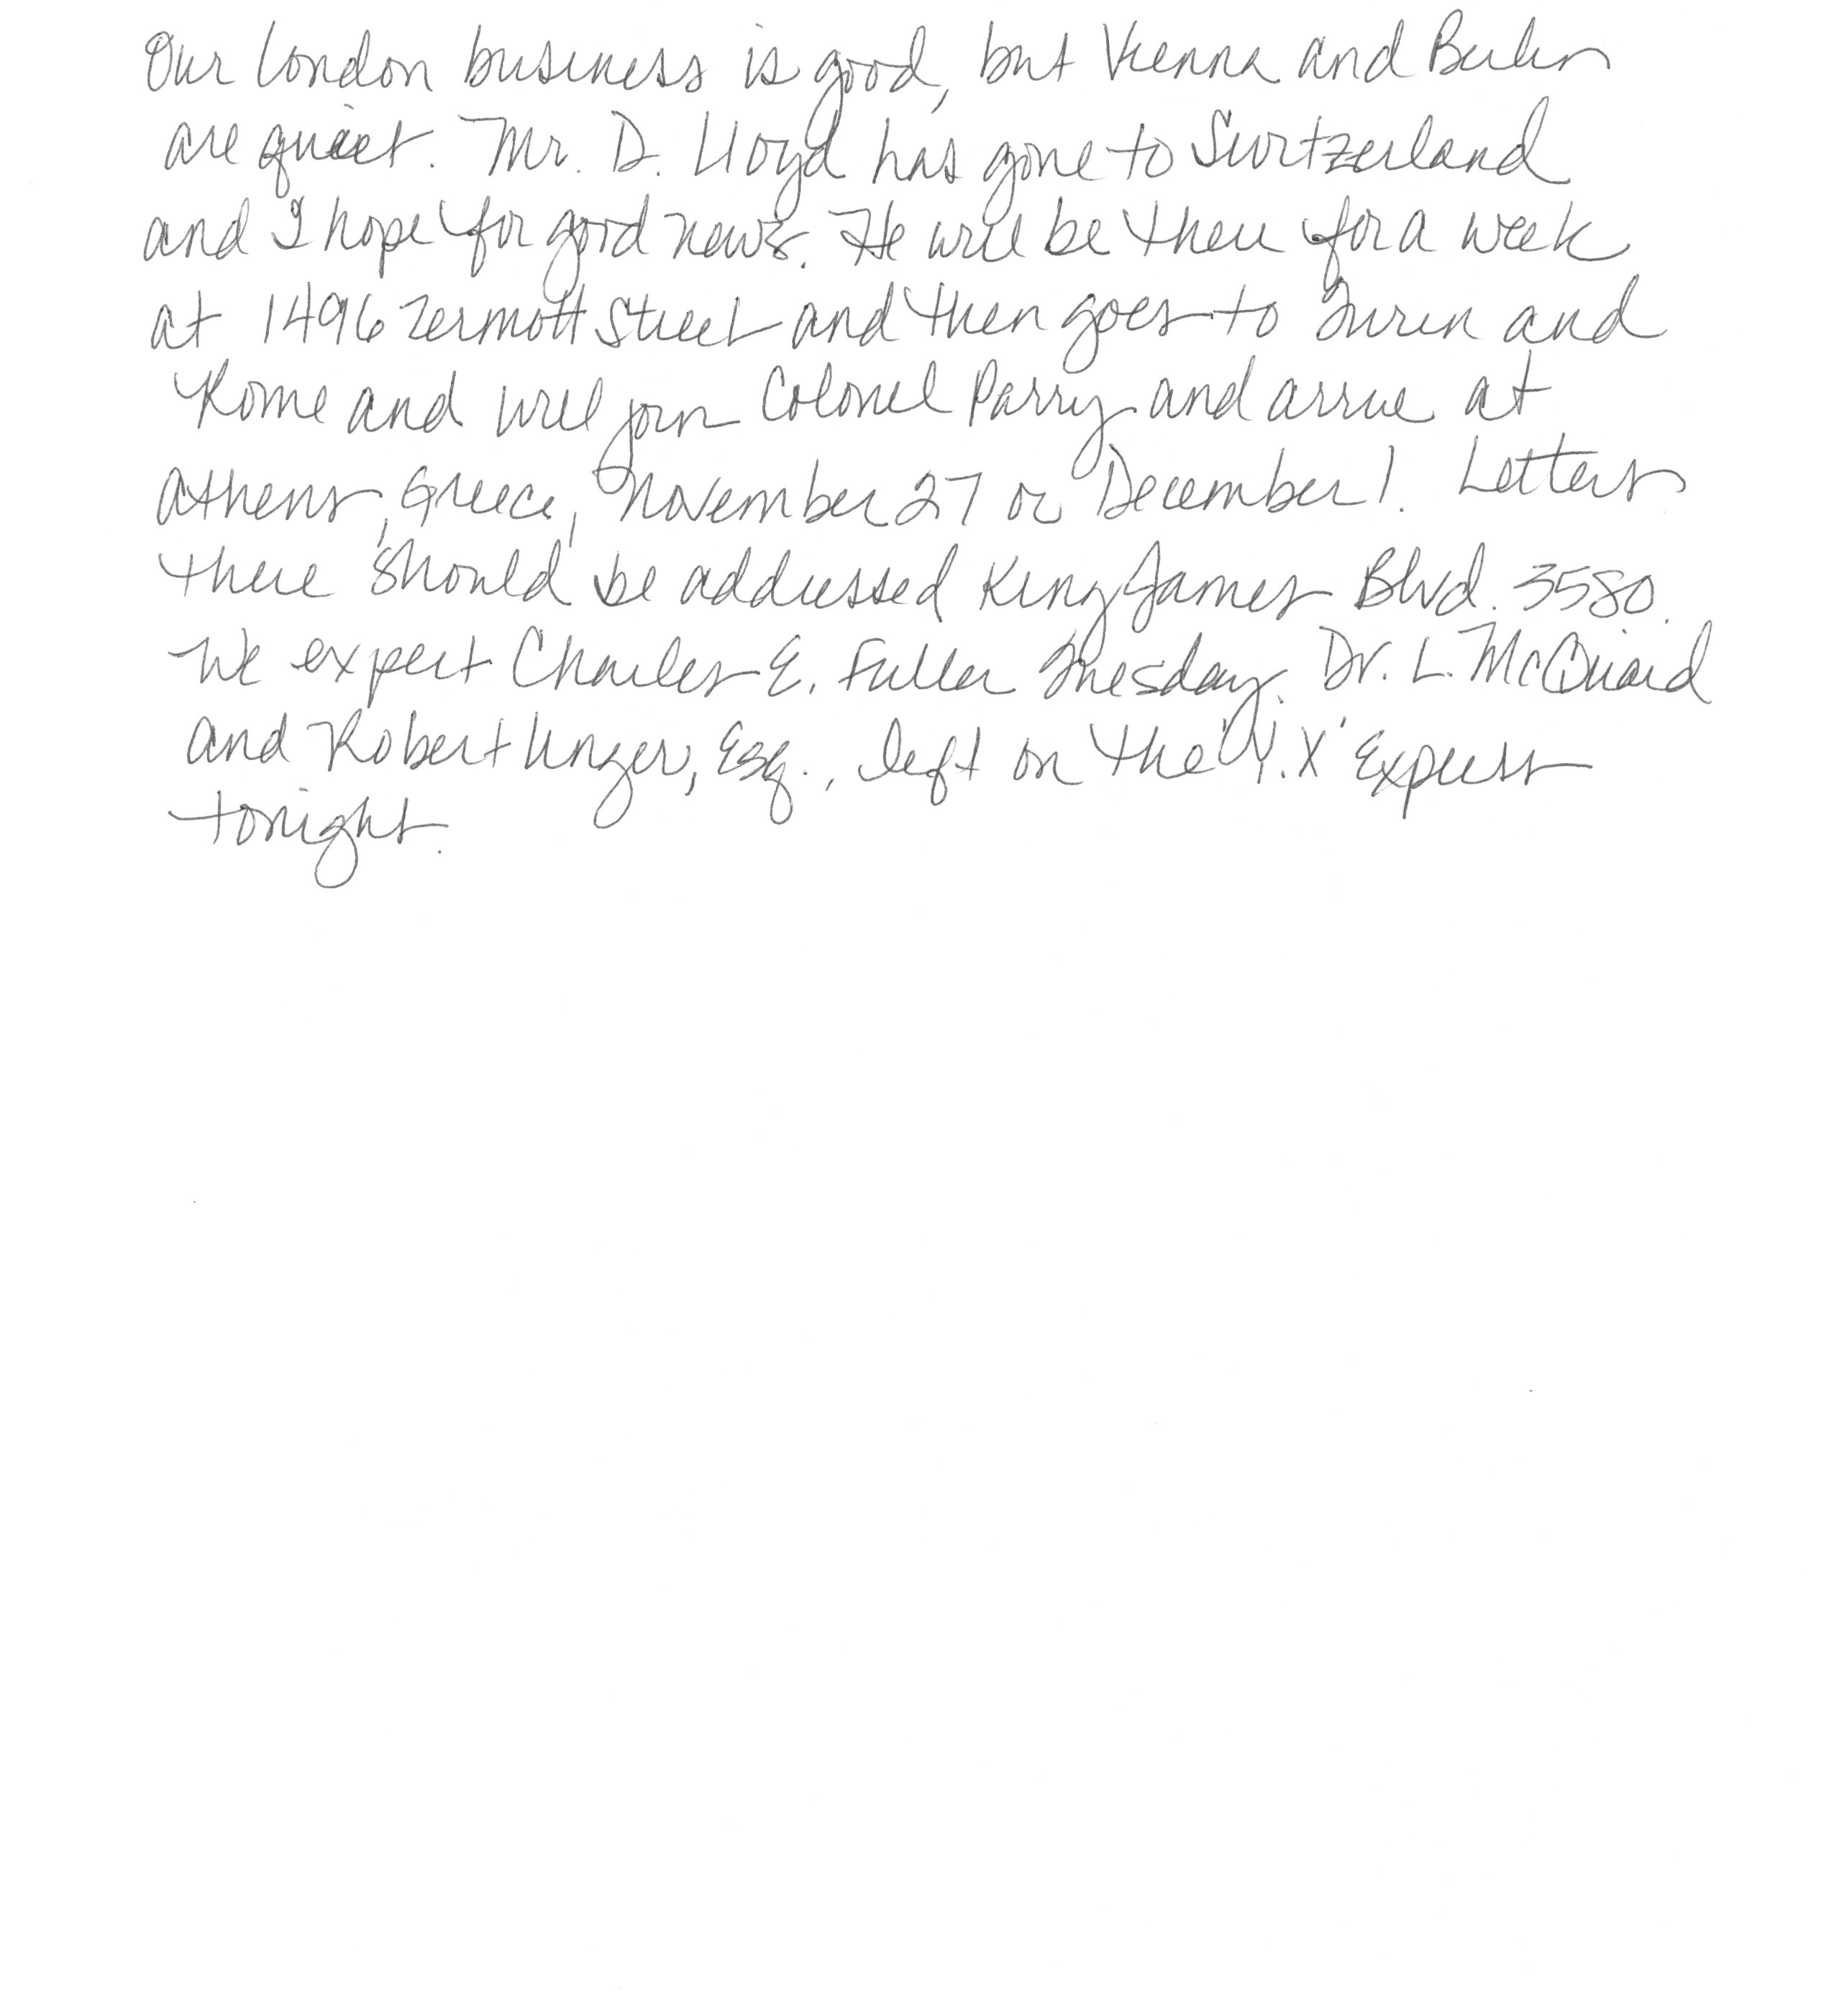 Our London business is good, but Vienna and Berlin
are quiet. Mr. D. Lloyd has gone to Switzerland
and I hope for good news. He will be there for a week
at 1496 Zermott Street and then goes to Turin and
Rome and will join Colonel Parry and arrive at
Athens, Greece, November 27 or December 1. Letters
there should be addressed King James Blvd. 3580.
We expect Charles E. Fuller Tuesday. Dr. L. McQuaid
and Robert Unger, Esq., left on the 'Y.X' Express
tonight.